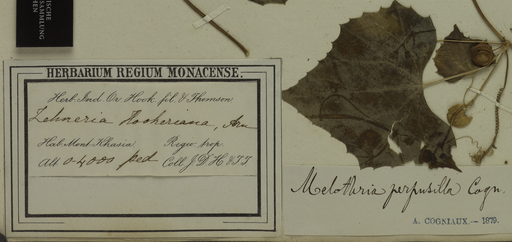 ISCHE
SAMMLUNG
HEN
HERBARIUM REGIUM MONACENSE.
Herb. Ind. Or. Hook. fil. & Thomson
Zehneria Hookeriana, Arn
Hab. Mont. Khasia Regio trop.
Alt. 0-4000 ped. Coll. J.D.H. & T.T.
Melothria perpusilla Cogn.
A. COGNIAUX.— 1879.